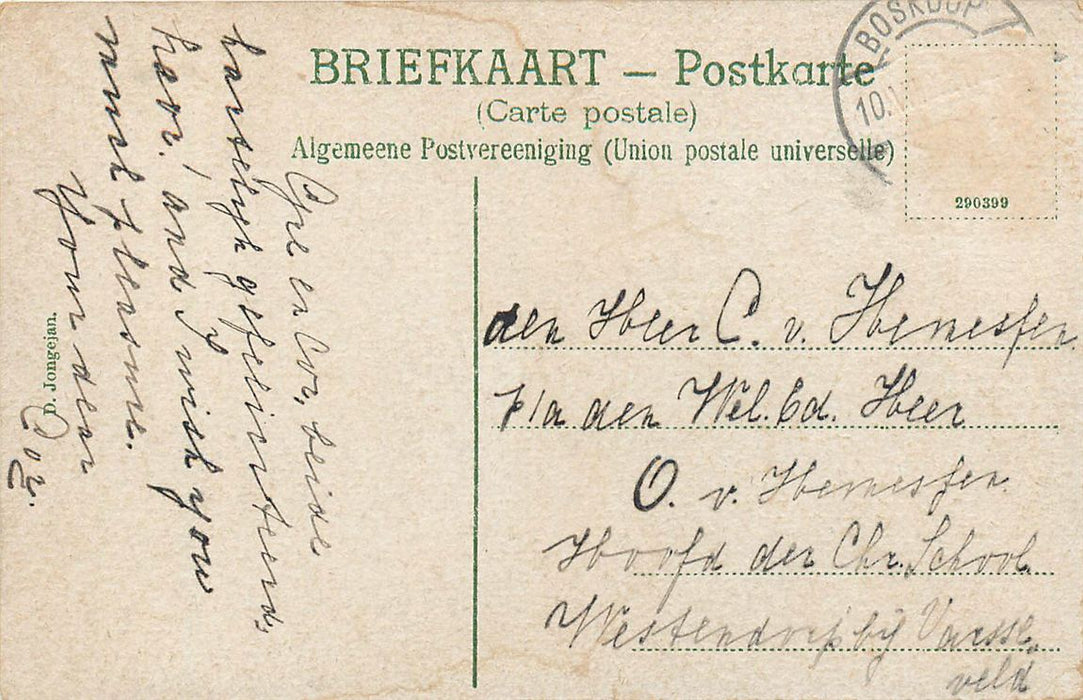 BRIEFKAART — Postkarte
(Carte postale)
Algemeene Postvereeniging (Union postale universelle)
BOSKOOP
10.
290399
en Cor, beide
hartelijk gefeliciteerd,
hoor! and I wish you
much pleasure.
Your dear
Cor.
D. Jongejan.
den Heer C. v. Hemesfen
p/a den Wel. Ed. Heer
O. v. Hemesfen
Hoofd der Chr. School
Westendorp bij Varsse-
veld